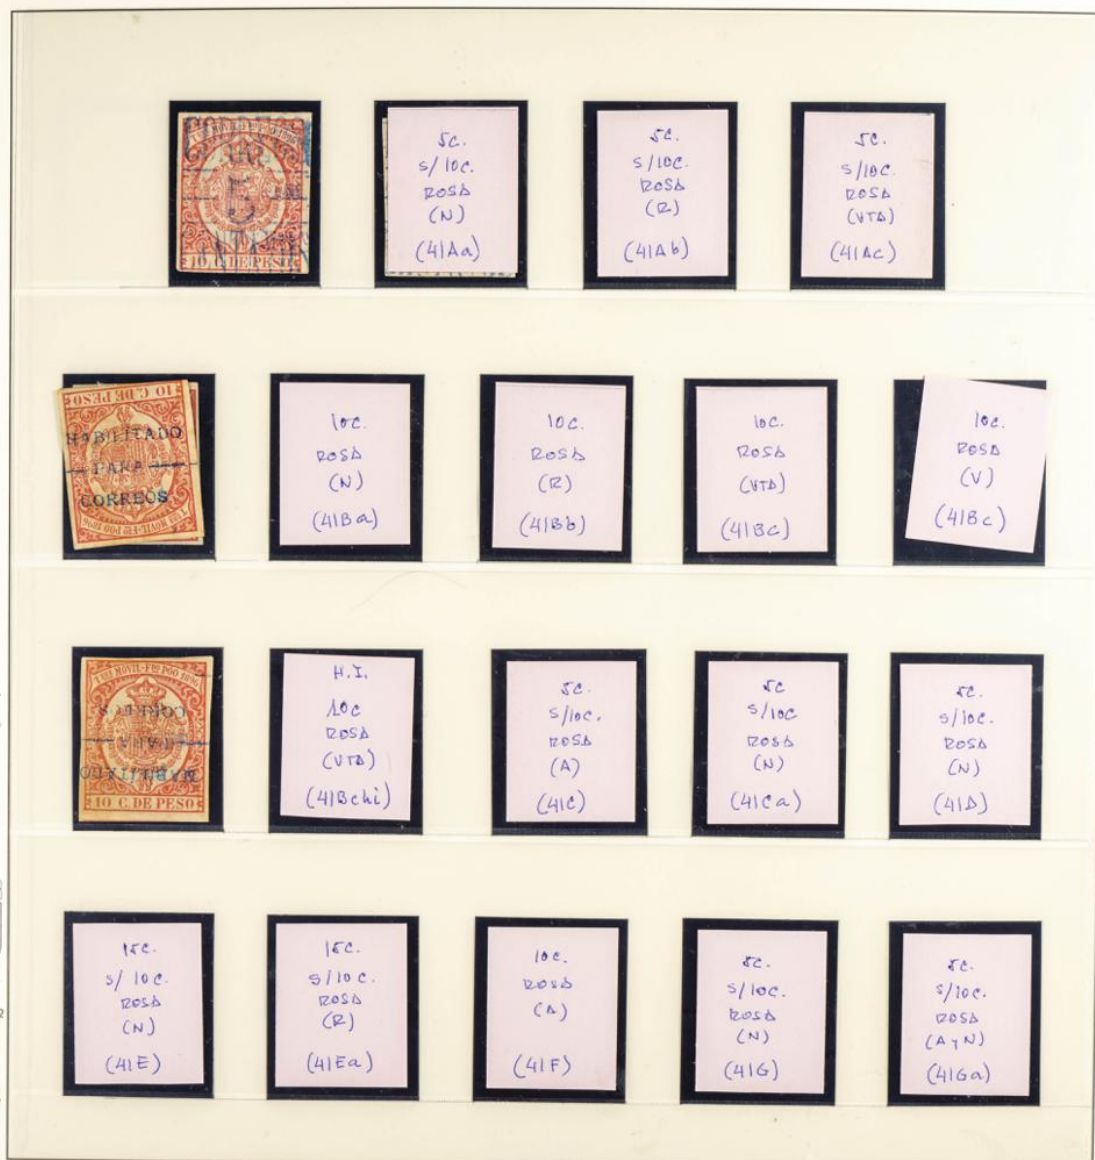 10 C. DE PESO
5c.
s/10c.
ROSA
(N)
(41Aa)
5c.
s/10c.
ROSA
(R)
(41Ab)
5c.
s/10c.
ROSA
(VTA)
(41Ac)
10 C. DE PESO
HABILITADO
PARA
CORREOS
TBE MOVIL-Fº POO 1896
10c.
ROSA
(N)
(41Ba)
10c.
ROSA
(R)
(41Bb)
10c.
ROSA
(VTA)
(41Bc)
10c.
ROSA
(V)
(41Bc)
CORREOS
PARA
HABILITADO
10 C. DE PESO
H.I.
10c
ROSA
(VTA)
(41Bchi)
5c.
s/10c.
ROSA
(A)
(41C)
5c
s/10c
ROSA
(N)
(41Ca)
5c.
s/10c.
ROSA
(N)
(41D)
15c.
s/10c.
ROSA
(N)
(41E)
15c.
s/10c.
ROSA
(R)
(41Ea)
10c.
ROSA
(A)
(41F)
5c.
s/10c.
ROSA
(N)
(41G)
5c.
s/10c.
ROSA
(AyN)
(41Ga)